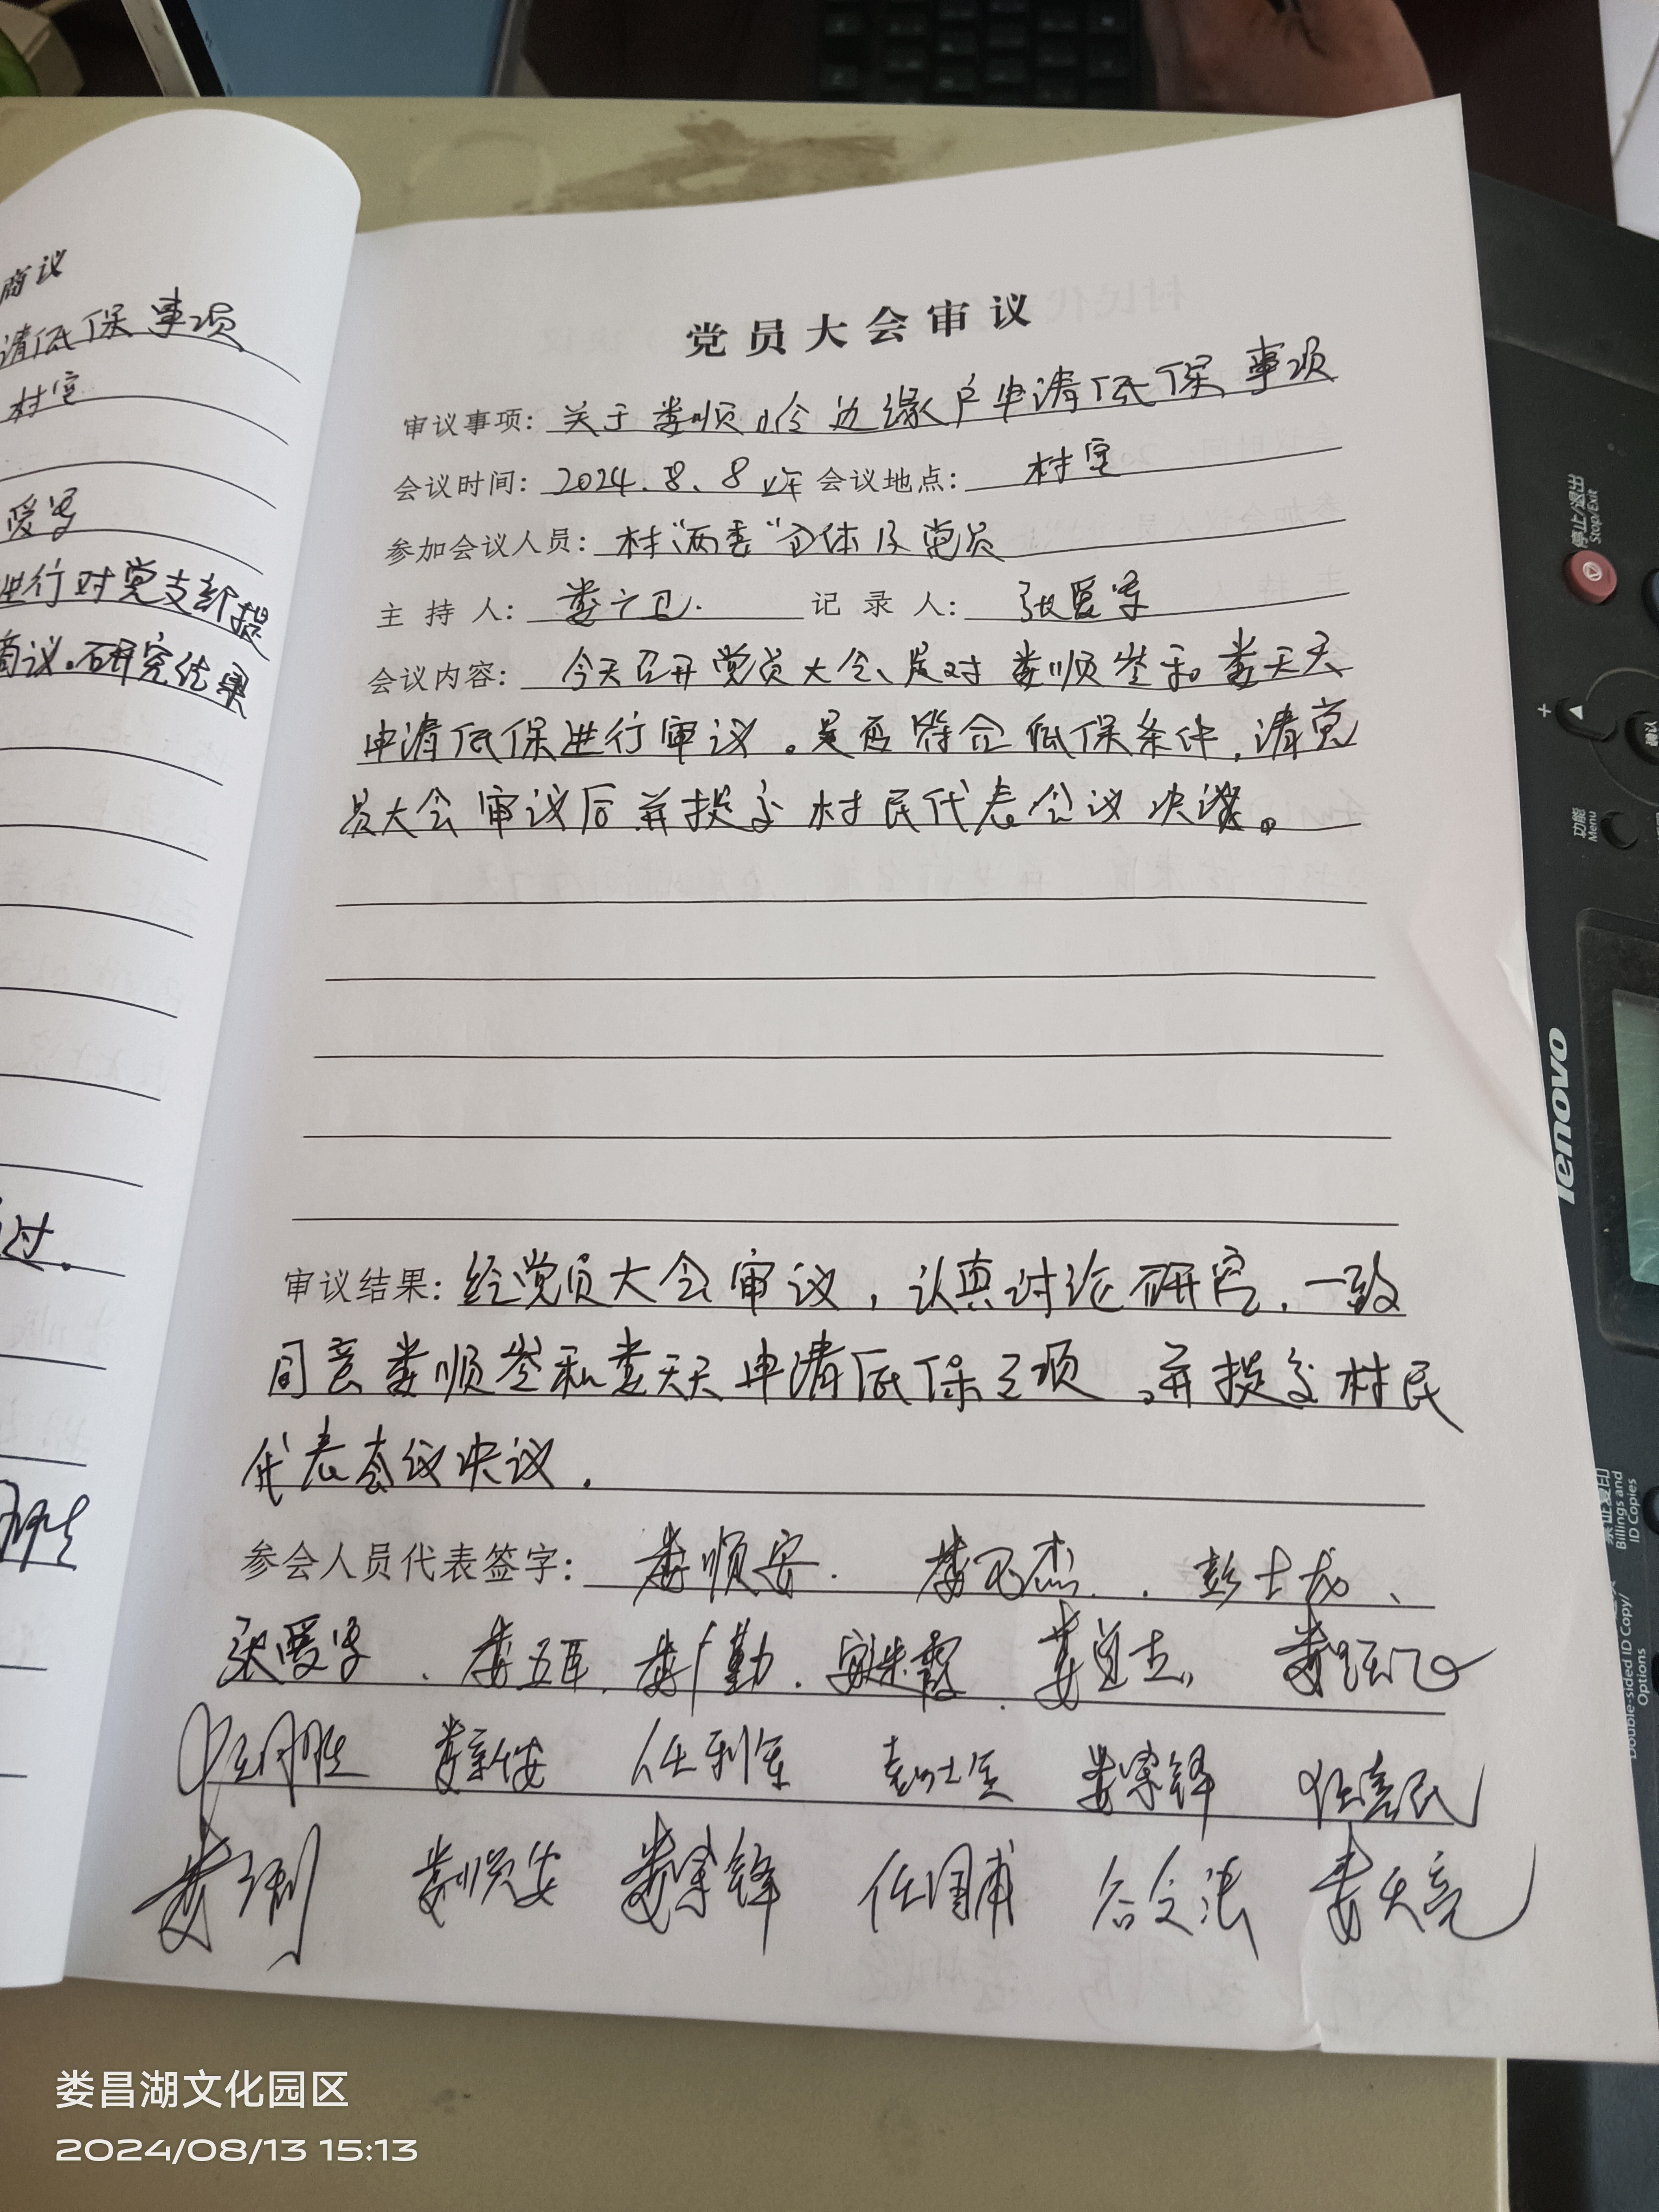 商议
请低保事项
村室
爱字
进行对党支部提
商议。研究结果
过.
党员大会审议
审议事项: 关于娄顺岭边缘户申请低保事项
会议时间: 2024.8.8 会议地点: 村室
参加会议人员: 村“两委”全体及党员
主持人: 娄广卫. 记录人: 张爱字
会议内容: 今天召开党员大会、是对娄顺岑和娄天天
申请低保进行审议。是否符合低保条件,请党
员大会审议后并提交村民代表会议决议。
审议结果: 经党员大会审议,认真讨论研究,一致
同意娄顺岑和娄天天申请低保之项。并提交村民
代表会议决议.
参会人员代表签字: 娄顺安. 娄卫杰. 彭士龙、
张爱字. 娄五军. 娄广勤.
娄新安 任利军 娄宗锋 任宪民
娄顺安 娄宗锋 任国甫 娄天亮
停止/退出
Stop/Exit
功能
Menu
确认
lenovo
证复印
Billings and
ID Copies
Double-sided ID Copy/
Options
娄昌湖文化园区
2024/08/13 15:13